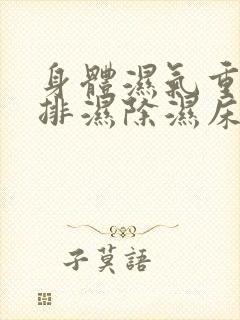 身體濕氣重
排濕除濕尿
子莫語